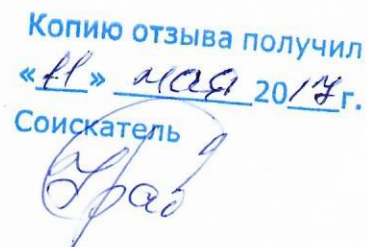 Копию отзыва получил
«11» мая 2017г.
Соискатель